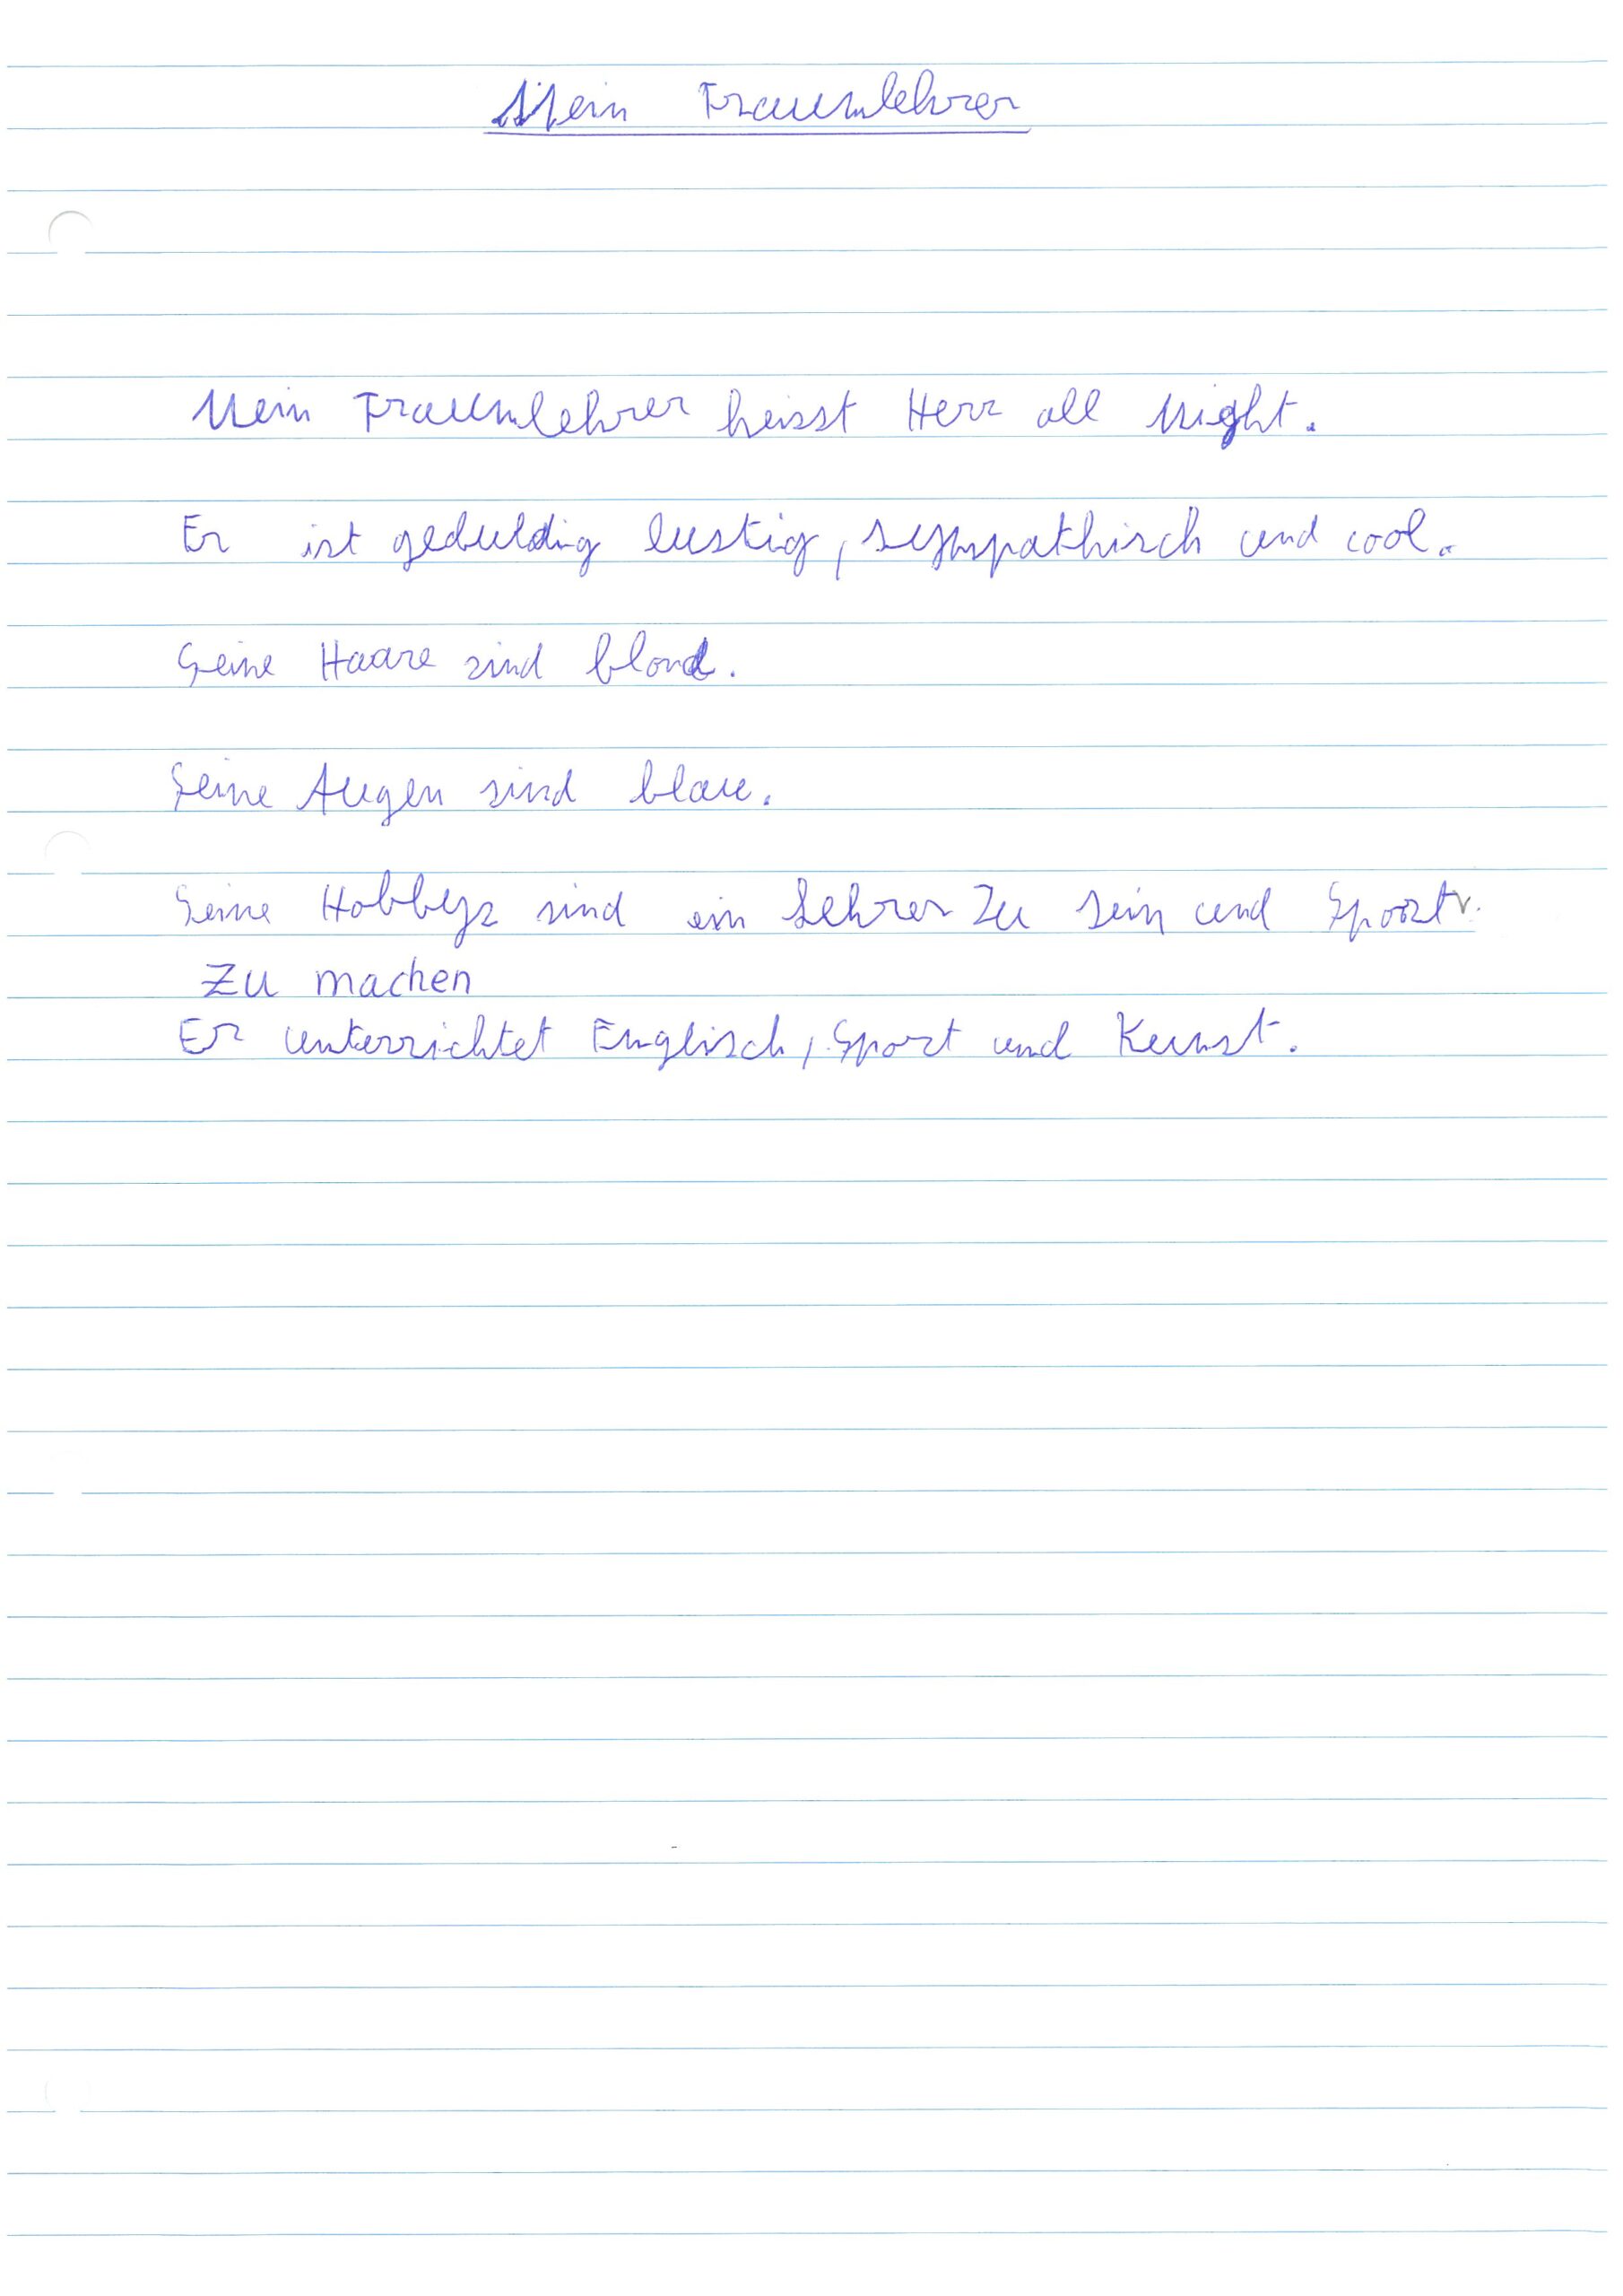 Mein Traumlehrer
Mein Traumlehrer heisst Herr all might.
Er ist geduldig lustig, sympathisch und cool.
Seine Haare sind blond.
Seine Augen sind blau.
Seine Hobbys sind ein Lehrer zu sein und Sport
zu machen
Er unterrichtet Englisch, Sport und Kunst.